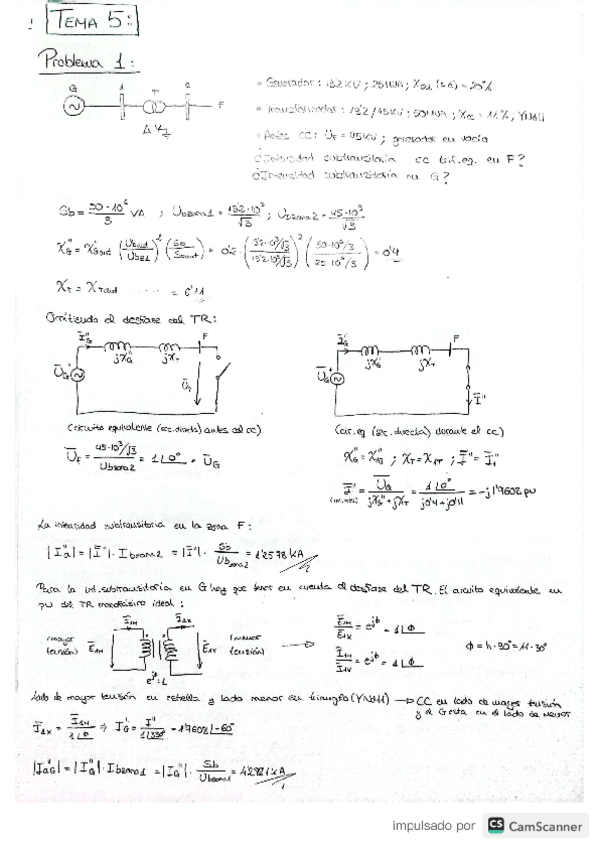 TEMA 5:
Problema 1:
G T 1 2 F
* Generador: 13'2 KV; 25 MVA; XGU (S.a) = 20%
* Transformador: 13'2/45KV; 50MVA; Xcc = 11%; YNd11
* Antes CC: UF = 45KV; generador en vacío
¿Intensidad subtransitoria cc trif. eq. en F?
¿Intensidad subtransitoria en G?
Sb = 50·10⁶/3 VA ; Ubzona1 = 13'2·10³/√3 ; Ubzona2 = 45·10³/√3
X"G = X"Gcd (Ubcd/Ubz1)² (Sb/Scd) = 0'2·(13'2·10³/√3 / 13'2·10³/√3)² (50·10⁶/3 / 25·10⁶/3) = 0'4
XT = XTcd ...... = 0'11
Omitiendo el desfase del TR:
I"G jX"G jXT F UG UF
I"G jX"G jXT F UG I"
(circuito equivalente (sec. directa) antes del cc)
(cir. eq (sec. directa) durante el cc)
UF = 45·10³/√3 / Ubzona2 = 1∠0° = UG
X"G = X"1G ; XT = X1T ; I" = I"1
I" = UG / jX"G + jXT = 1∠0° / j0'4 + j0'11 = -j1'9602 pu
La intensidad subtransitoria en la zona F:
|I"a| = |I"|· Ibzona2 = |I"|· Sb/Ubzona2 = 1'2578 kA
Para la int. subtransitoria en G hay que tener en cuenta el desfase del TR. El circuito equivalente en
pu del TR monofásico ideal:
(mayor tensión) E1H I1H I1X E1X (menor tensión) e^jϕ:1
E1H/E1X = e^jϕ = 1∠ϕ
I1H/I1X = e^jϕ = 1∠ϕ
ϕ = h·30° = 11·30°
Lado de mayor tensión en estrella y lado menor en triángulo (YNd11) → CC en lado de mayor tensión
y el G esta en el lado de menor
I1X = I1H/1∠ϕ ⇒ I"G = I"/1∠330° = 1'9602∠-60°
|I"aG| = |I"G|· Ibzona1 = |I"G|· Sb/Ubzona1 = 4'2921 kA
impulsado por CS CamScanner